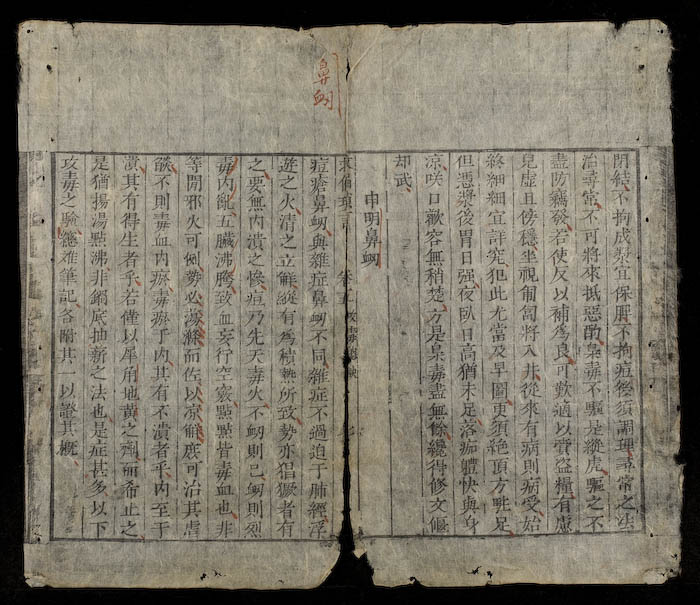 閉結不拘成漿宜保脾不拘痘後須調理尋常之法
治尋常不可將來抵惡酌梟毒不驅是縱虎驅之不
盡防竊發若使反以補為良可歎適以齎盜糧有慮
兒虛且傍穩坐視匍匐將入井從來有病則病受始
終細細宜詳究犯此尤當及早圖更須絕頂方駐足
但憑漿後胃日强夜臥日高猶未足落痂軆快與身
凉咲口歡容無稍楚方是梟毒盡無餘纔得修文偃
却武
申明鼻衂
鼻衂
卷五
痘瘡鼻衂與雜症鼻衂不同雜症不過迫于肺經浮
遊之火清之立解縱有為積熱所致勢亦猖獗者有
之要無內潰之慘痘乃先天毒火不衂則已衂則烈
毒內亂五臟沸騰致血妄行空竅點點皆毒血也非
等閒邪火可例勢必滌滌而佐以凉解庶可治其虐
燄不則毒血內瘀毒瘀于內其有不潰者乎內至于
潰其有得生者乎若僅以犀角地黃之劑而希止之
是猶揚湯點沸非鍋底抽薪之法也是症甚多以下
攻毒之驗
難筆記各附其一以證其概